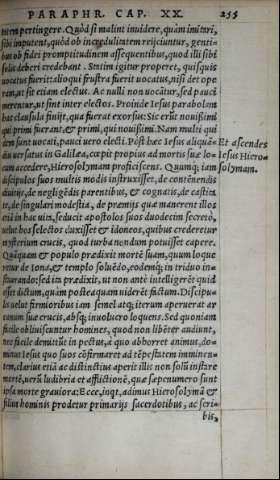 PARAPHR. CAP. XX. 255
tutem pertingere. Quòd si malint inuidere, quàm imitari,
sibi imputent, quòd ob incredulitatem reijciuntur, genti-
bus ob fidei promptitudinem assequentibus, quod illi sibi
solis deberi credebant. Statim igitur properet, quisquis
uocatus fuerit: alioqui frustra fuerit uocatus, nisi det ope
ram, ut sit etiam electus. Ac nulli non uocãtur, sed pauci
merentur, ut sint inter electos. Proinde Iesus parabolam
hac clausula finijt, qua fuerat exorsus: Sic erũt nouißimi
qui primi fuerant, & primi, qui nouißimi. Nam multi qui
dem sunt uocati, pauci uero electi. Post hæc Iesus aliquã-
diu uersatus in Galilæa, cœpit propius ad mortis suæ lo-
cum accedere, Hierosolymam proficiscens. Quumq; iam
discipulos suos multis modis instruxisset, de contēnendis
diuitijs, de negligēdis parentibus, & cognatis, de castita
te, de singulari modestia, de præmijs quæ manerent illos
etiã in hac uita, seducit apostolos suos duodecim secretò,
uelut hos selectos duxisset & idoneos, quibus crederetur
mysterium crucis, quod turba nondum potuisset capere.
Quãquam & populo prædixit mortē suam, quum loque
retur de Iona, & templo soluēdo, eodemq; in triduo in-
staurando: sed ita prædixit, ut non antè intelligerēt quid
esset dictum, quàm posteaquam uiderēt factum. Discipu
lis uelut firmioribus iam semel atq; iterum aperuerat ar
canum suæ crucis, absq; inuolucro loquens. Sed quoniam
facile obliuiscuntur homines, quod non libēter audiunt,
nec facile demittũt in pectus, à quo abhorret animus, do-
minus Iesus quo suos cõfirmaret ad tēpestatem imminen
tem, clarius etiã ac distinctius aperit illis non solũ instare
mortē, uerũ ludibria et afflictionē, quæ sæpenumero sunt
ipsa morte grauiora: Ecce, inqt, adimus Hierosolymã &
filius hominis prodetur primarijs sacerdotibus, ac scri-
bis,
Et ascendēs
Iesus Hiero-
solymam.